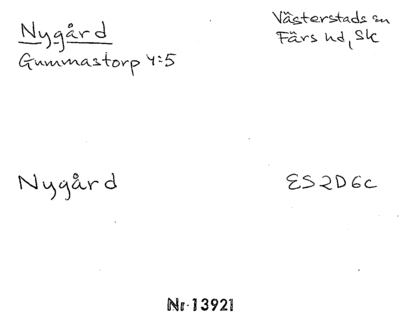 Nygård
Gummastorp 4:5
Västerstads sn
Färs hd, Sk
Nygård
ES2D6c
Nr 13921